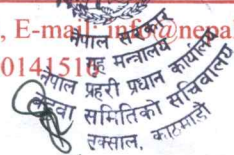 , E-mail: info@nepa
0141516
नेपाल सरकार
गृह मन्त्रालय
नेपाल प्रहरी प्रधान कार्यालय
केन्द्रीय समितिको सचिवालय
टक्साल, काठमाडौं